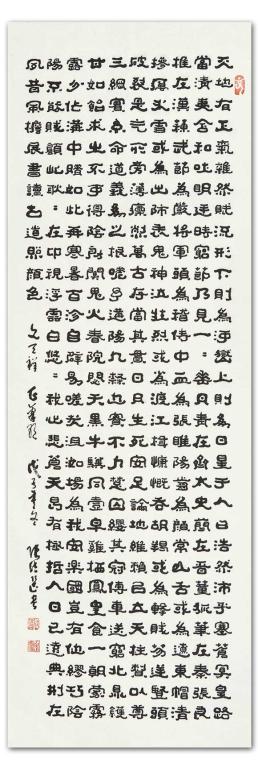 天地有正氣雜然賦流形下則為河嶽上則為日星於人曰浩然沛乎塞蒼冥皇路
當清夷含和吐明庭時窮節乃見一一垂丹青在齊太史簡在晉董狐筆在秦張良
椎在漢蘇武節為嚴將軍頭為嵇侍中血為張睢陽齒為顏常山舌或為遼東帽清
操厲冰雪或為出師表鬼神泣壯烈或為渡江楫慷慨吞胡羯或為擊賊笏逆豎頭
破裂是氣所旁薄凜烈萬古存當其貫日月生死安足論地維賴以立天柱賴以尊
三綱實系命道義為之根嗟予遘陽九隸也實不力楚囚纓其冠傳車送窮北鼎鑊
甘如飴求之不可得陰房闃鬼火春院閟天黑牛驥同壹皁雞棲鳳皇食一朝蒙霧
露分作溝中瘠如此再寒暑百沴自辟易嗟哉沮洳場為我安樂國豈有他繆巧陰
陽不能賊顧此耿耿在仰視浮雲白悠悠我心悲蒼天曷有極哲人日已遠典刑在
夙昔風簷展書讀古道照顏色
文天祥 正氣歌 戊子年冬